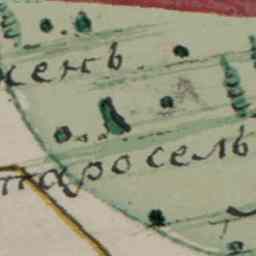 кень
таросель